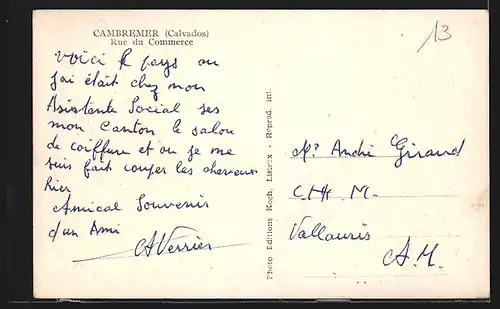 CAMBREMER (Calvados)
Rue du Commerce
13
Voici le pays ou
j'ai était chez mon
Asistente Social ses
mon Canton le salon
de coiffure et ou je me
suis fait couper les cheveux
hier
Amical Souvenir
d'un Ami
A Verrier
Photo Editions Kogh, Lisieux - Reprod. int.
Mr André Giraud
C.H.M.
Vallauris
A.M.